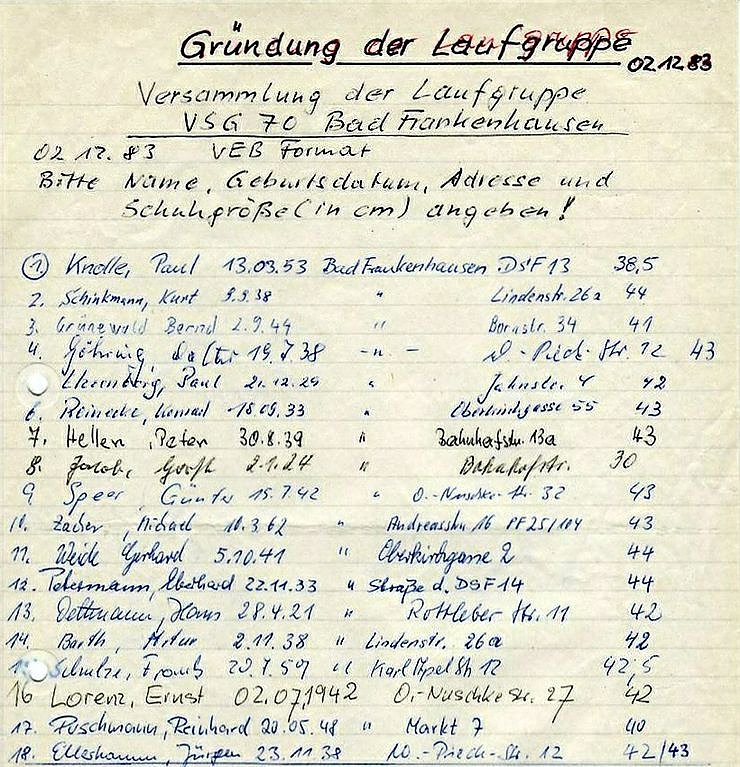 Gründung der Laufgruppe
02.12.83
Versammlung der Laufgruppe
VSG 70 Bad Frankenhausen
02.12.83 VEB Format
Bitte Name, Geburtsdatum, Adresse und
Schuhgröße (in cm) angeben!
1. Knolle, Paul 13.03.53 Bad Frankenhausen DSF 13 38,5
2. Schinkmann, Kurt 9.9.38 " Lindenstr. 26a 44
3. Grünewald Bernd 2.9.44 " Bornstr. 34 41
4. Göhring, 19.7.38 - " - W.-Pieck-Str. 12 43
Paul 21.12.29 " Jahnstr. 4 42
6. Reinecke, Konrad 18.09.33 " Oberkirchgasse 55 43
7. Heller, Peter 30.8.39 " Bahnhofstr. 13a 43
8. 2.1.24 " Bahnhofstr. 30
9. Speer, Günter 15.7.42 " O.-Nuschke-Str. 32 43
10. Zacher, Michael 10.3.62 " Andreasstr. 16 PF 25/104 43
11. Weide Gerhard 5.10.41 " Oberkirchgasse 2 44
12. Petermann, Eberhard 22.11.33 " Straße d. DSF 14 44
13. Dettmann, Hans 28.4.21 " Rottleber Str. 11 42
14. Barth, Artur 2.11.38 " Lindenstr. 26a 42
Schulze, Frank 20.7.59 " Karl Apel Str 12 42,5
16 Lorenz, Ernst 02.07.1942 O.-Nuschke Str. 27 42
17. Puschmann, Reinhard 20.05.48 " Markt 7 40
18. Jürgen 23.11.38 W.-Pieck-Str. 12 42/43